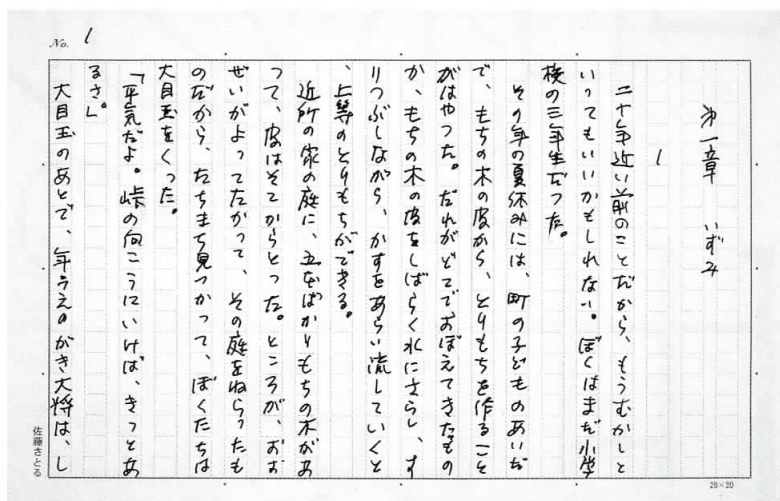 No. 1
第一章　いずみ
1
二十年近い前のことだから、もうむかしと
いってもいいかもしれない。ぼくはまだ小学
校の三年生だった。
その年の夏休みには、町の子どものあいだ
で、もちの木の皮から、とりもちを作ること
がはやった。だれがどこでおぼえてきたもの
か、もちの木の皮をしばらく水にさらし、す
りつぶしながら、かすをあらい流していくと
、上等のとりもちができる。
近所の家の庭に、五本ばかりもちの木があ
って、皮はそこからとった。ところが、おお
ぜいがよってたかって、その庭をねらったも
のだから、たちまち見つかって、ぼくたちは
大目玉をくった。
「平気だよ。峠の向こうにいけば、きっとあ
るさ。」
大目玉のあとで、年うえのがき大将は、し
佐藤さとる
20×20